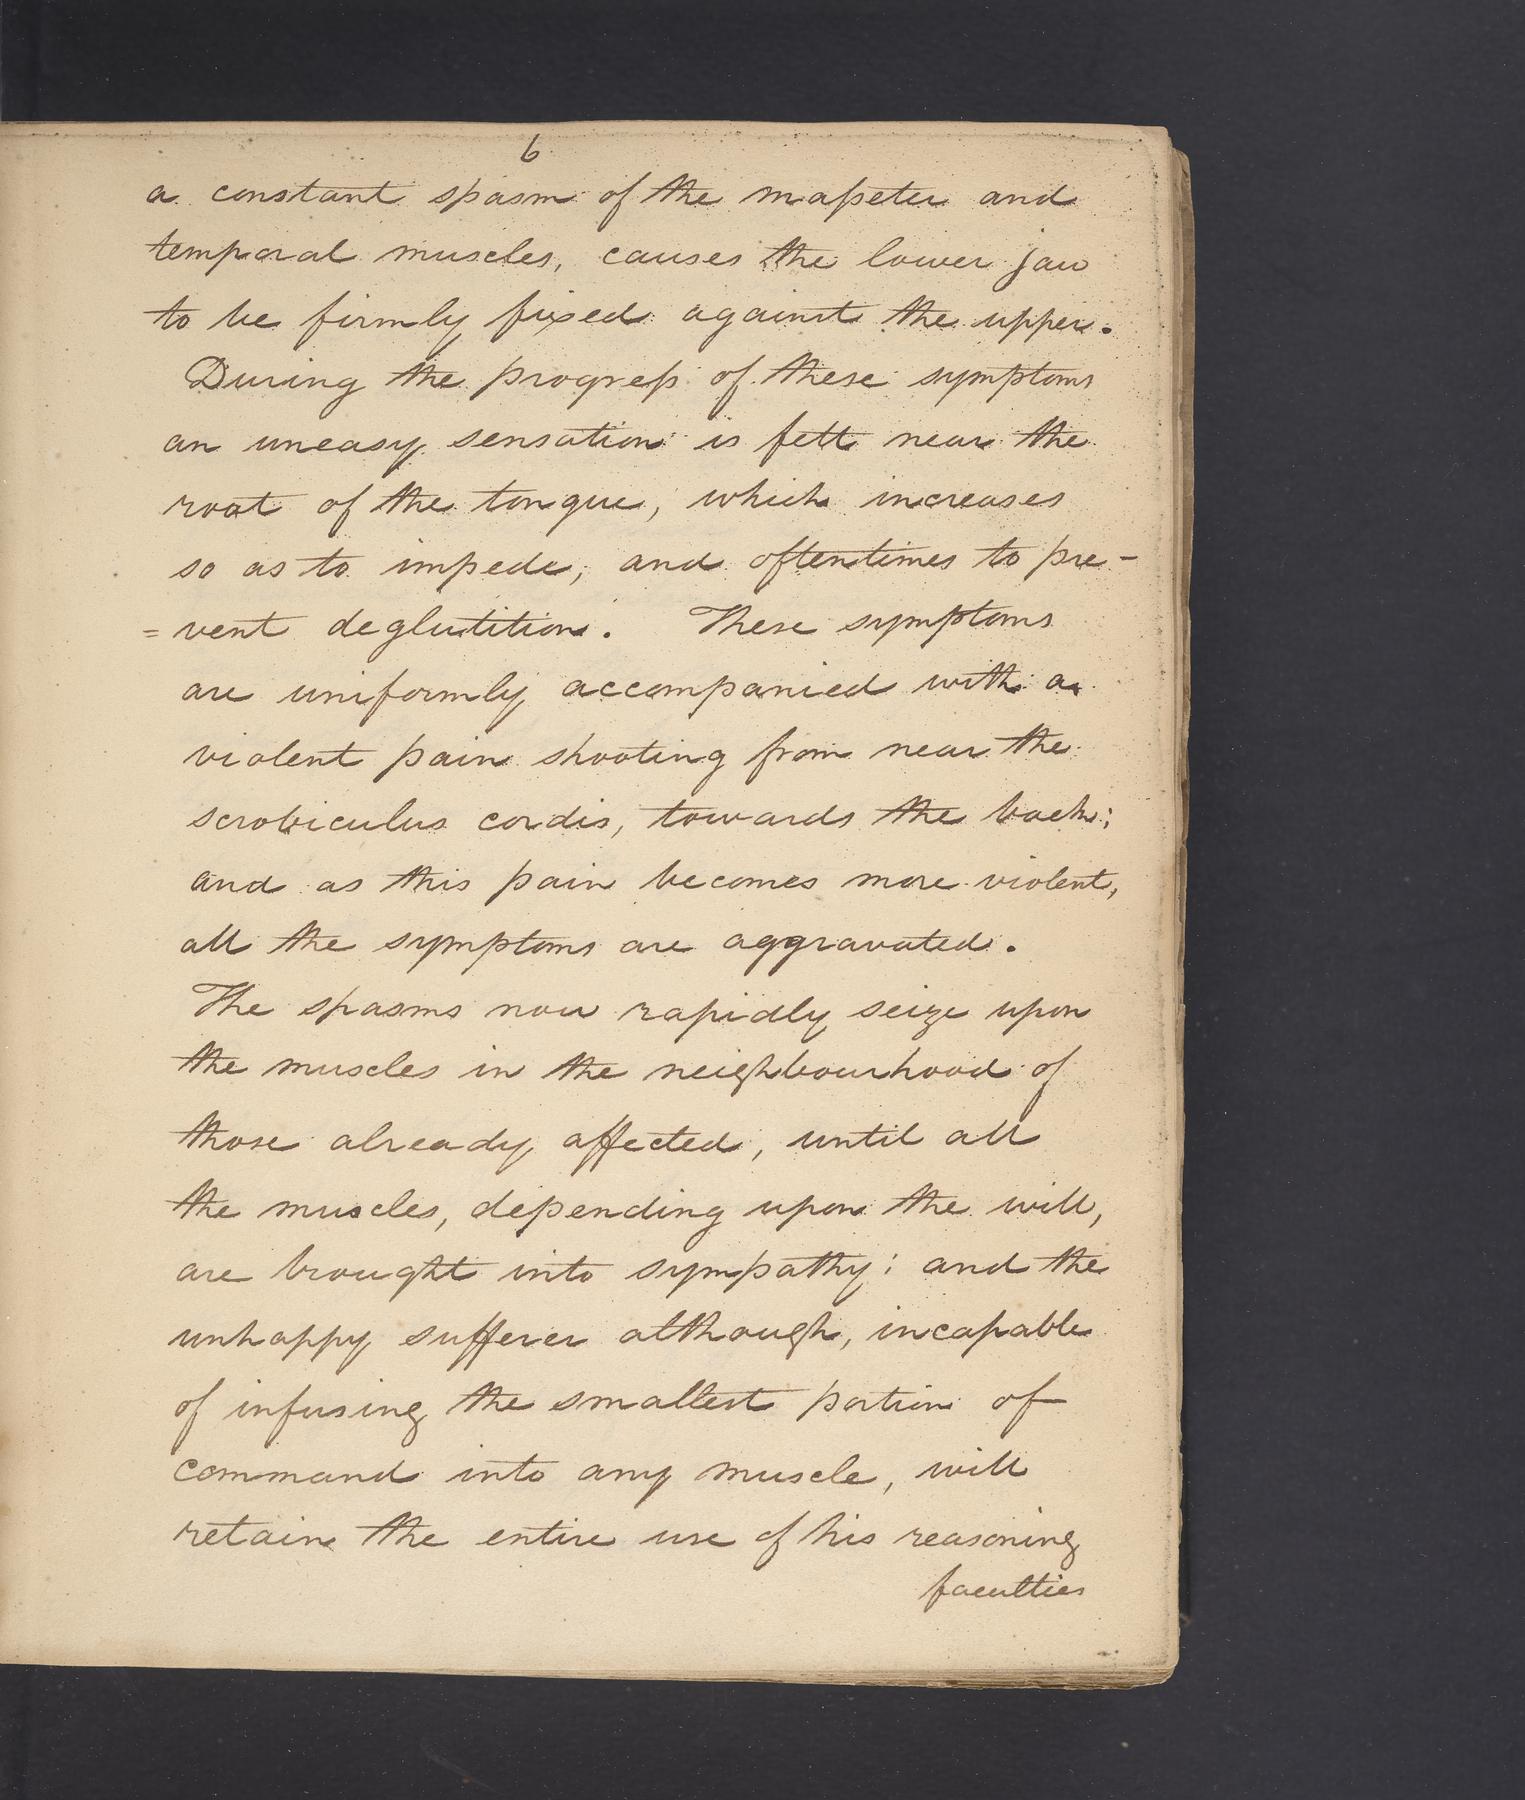 6
a constant spasm of the maſseter and
temporal muscles, causes the lower jaw
to be firmly fixed against the upper.
During the progreſs of these symptoms
an uneasy sensation is felt near the
root of the tongue, which increases
so as to impede, and oftentimes to pre-
=vent deglutition. These symptoms
are uniformly accompanied with a
violent pain shooting from near the
scrobiculus cordis, towards the back;
and as this pain becomes more violent,
all the symptoms are aggravated.
The spasms now rapidly seize upon
the muscles in the neighbourhood of
those already affected, until all
the muscles, depending upon the will,
are brought into sympathy; and the
unhappy sufferer although, incapable
of infusing the smallest portion of
command into any muscle, will
retain the entire use of his reasoning
faculties